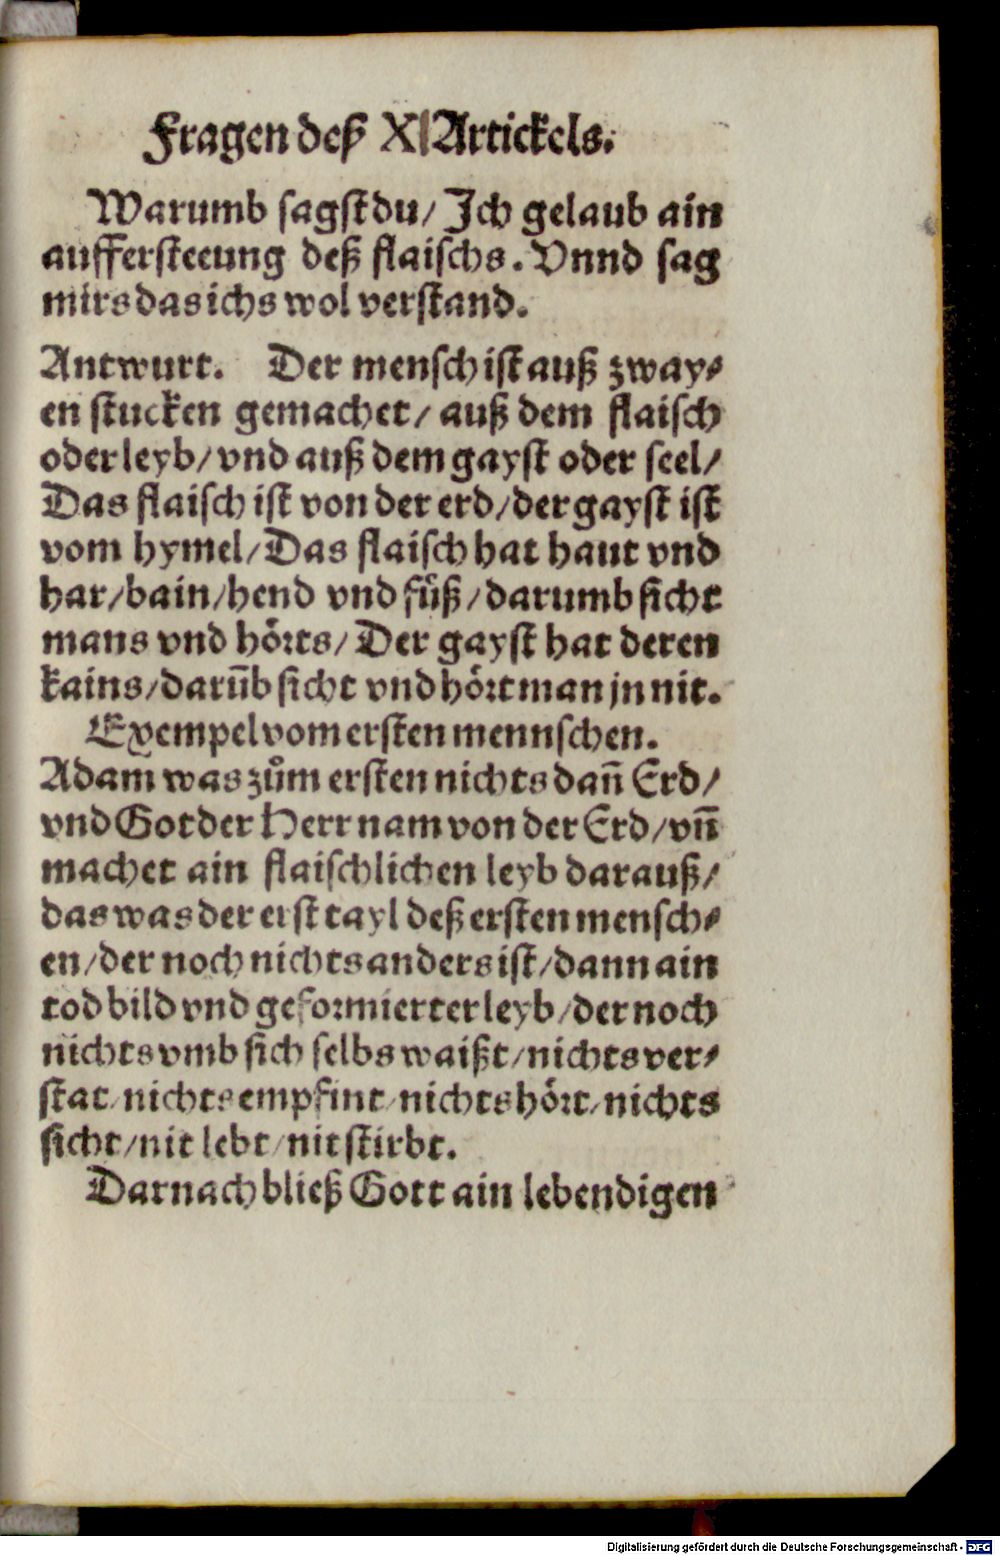 Fragen deß XI Artickels.
Warumb sagst du/ Jch gelaub ain
auffersteeung deß flaischs. Vnnd sag
mirs das ichs wol verstand.
Antwurt. Der mensch ist auß zway⸗
en stucken gemachet/ auß dem flaisch
oder leyb/ vnd auß dem gayst oder seel/
Das flaisch ist von der erd/ der gayst ist
vom hymel/ Das flaisch hat haut vnd
har/ bain/ hend vnd fuͤß/ darumb sicht
mans vnd hoͤrts/ Der gayst hat deren
kains/ darūb sicht vnd hoͤrt man jn nit.
Exempel vom ersten mennschen.
Adam was zuͦm ersten nichts dañ Erd/
vnd Got der Herr nam von der Erd/ vñ
machet ain flaischlichen leyb darauß/
das was der erst tayl deß ersten mensch⸗
en/ der noch nichts anders ist/ dann ain
tod bild vnd geformierter leyb/ der noch
nichts vmb sich selbs waißt/ nichts ver⸗
stat/ nichts empfint/ nichts hoͤrt/ nichts
sicht/ nit lebt/ nit stirbt.
Darnach bließ Gott ain lebendigen
Digitalisierung gefördert durch die Deutsche Forschungsgemeinschaft - DFG